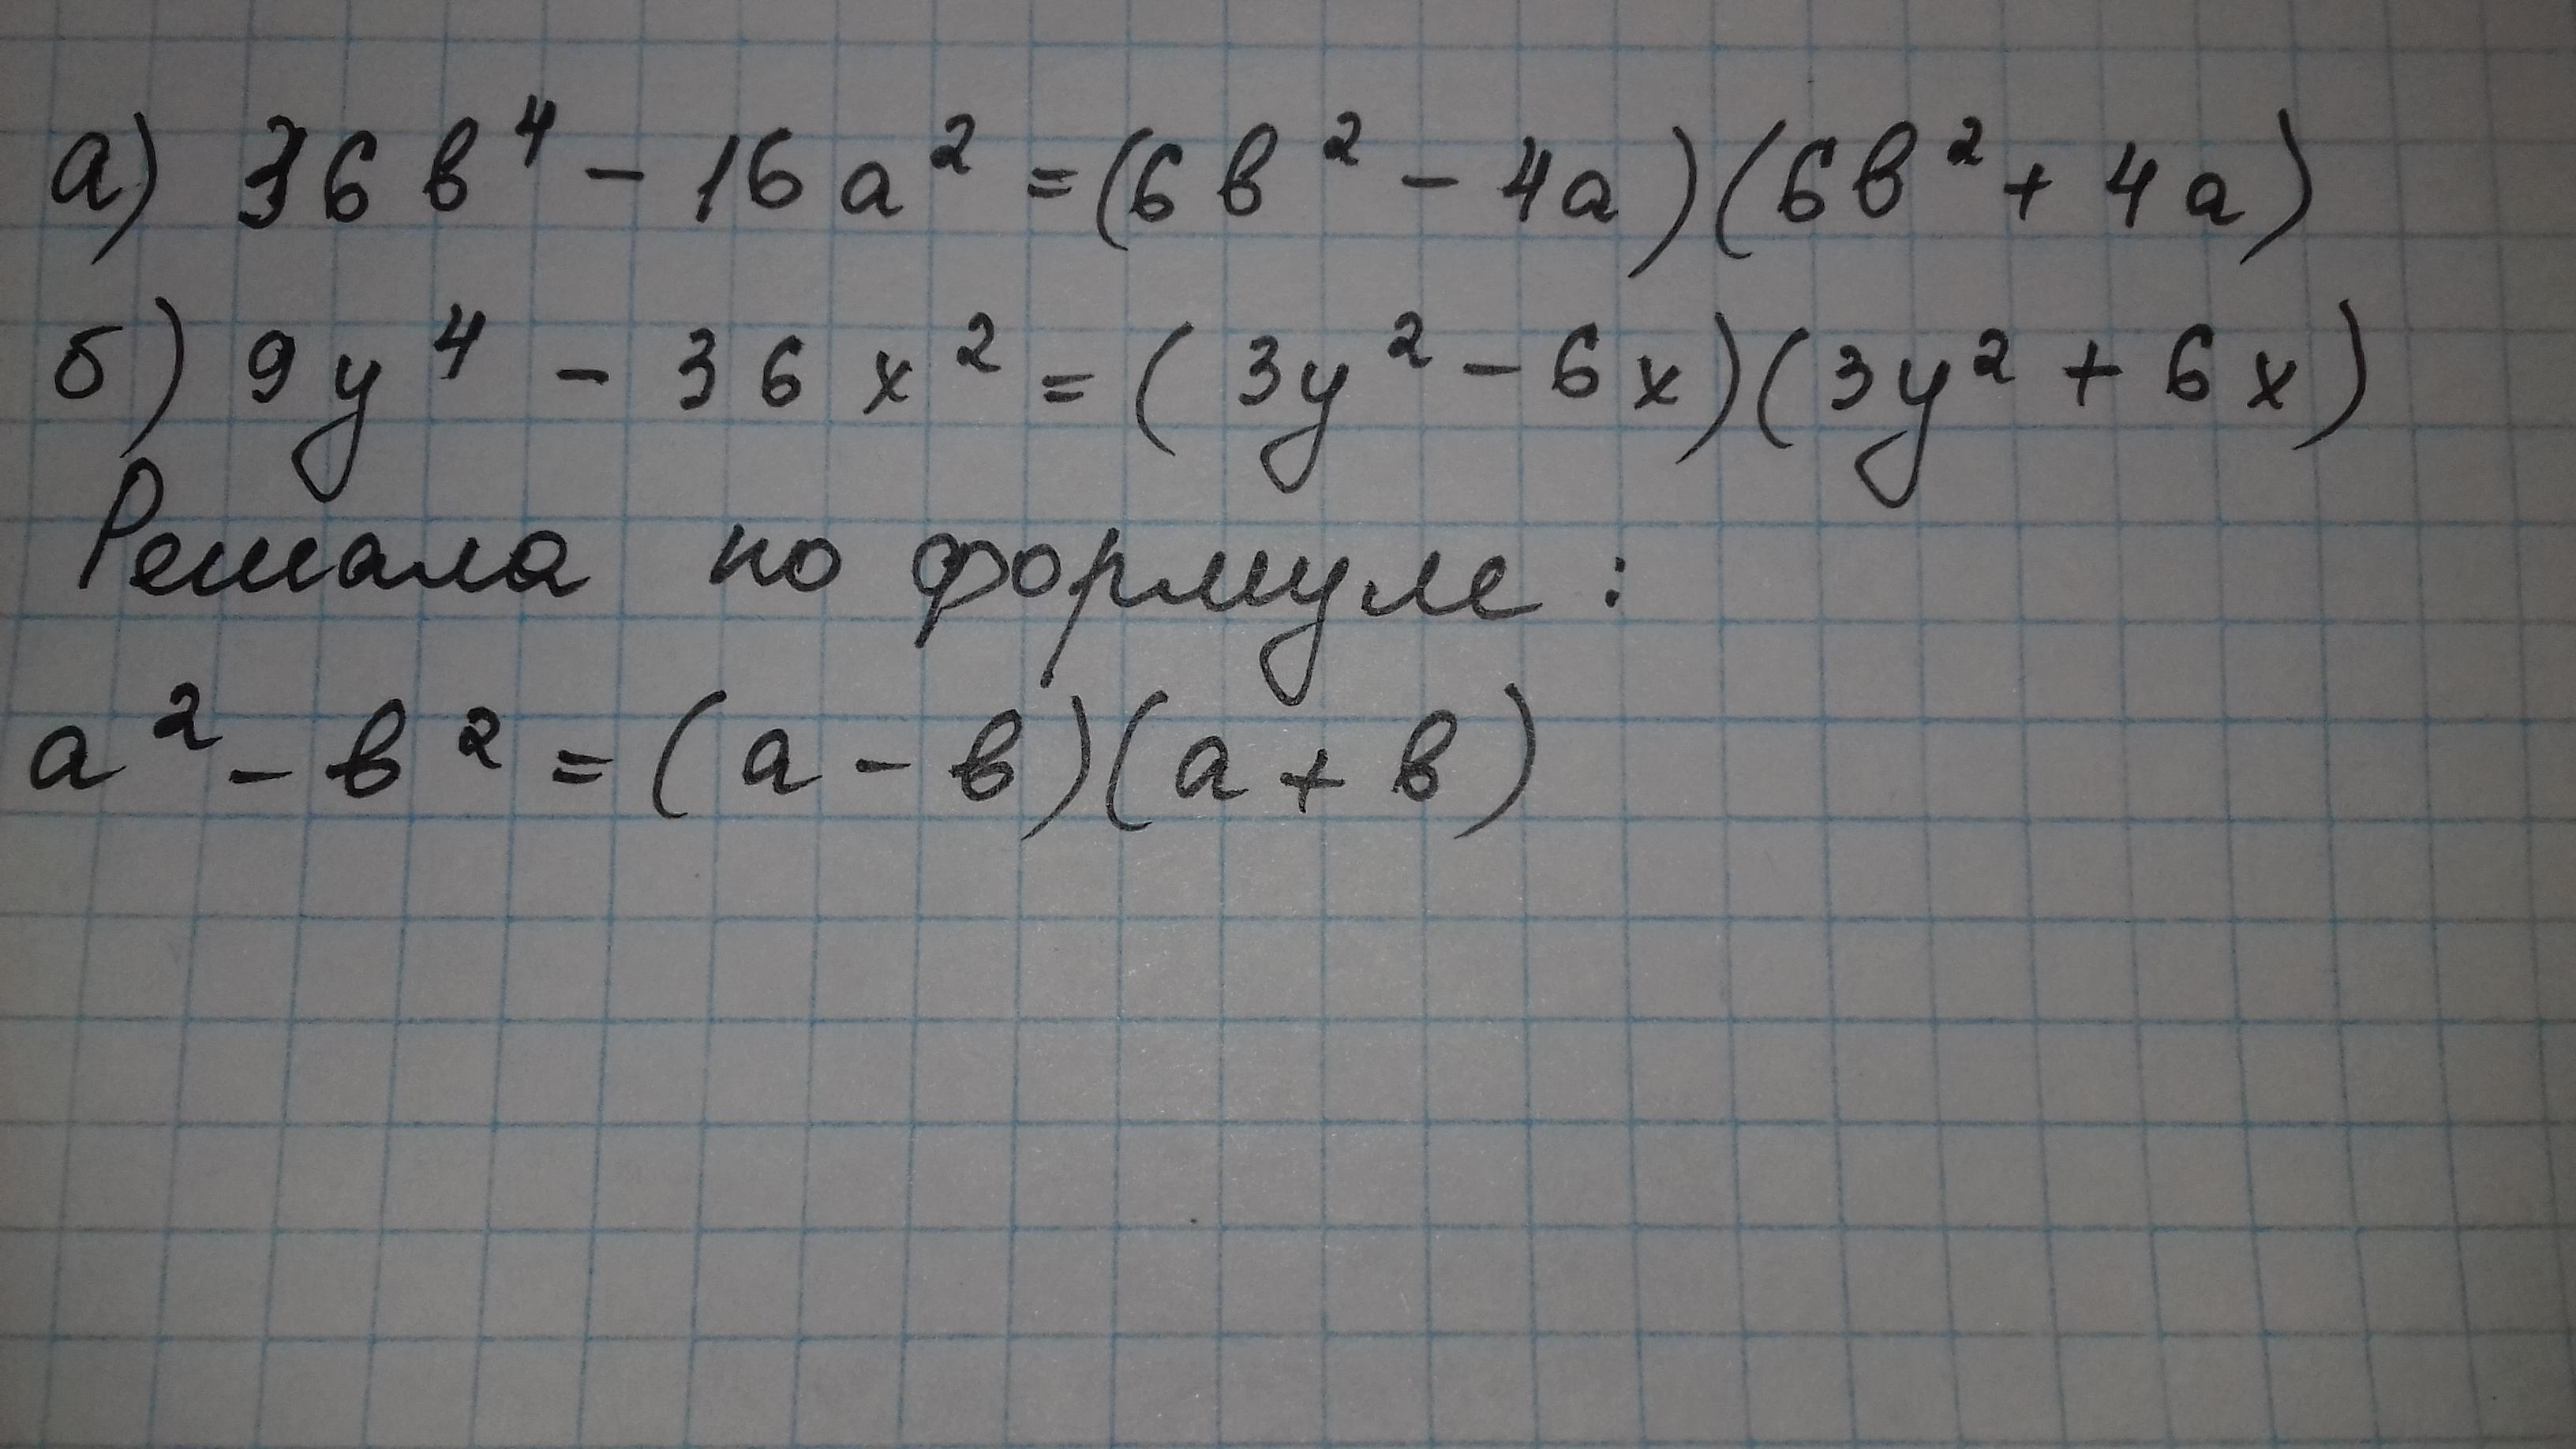 а) 36в⁴ - 16а² = (6в² - 4а)(6в² + 4а)
б) 9у⁴ - 36х² = (3у² - 6х)(3у² + 6х)
Решала по формуле:
а² - в² = (а - в)(а + в)